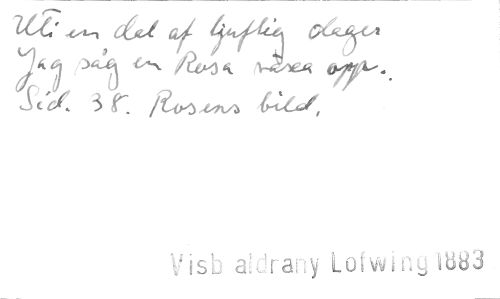 Uti en dal af ljuflig dager
Jag såg en Rosa växa opp.
Sid. 38. Rosens bild.
Visb aldrany Lofwing 1883